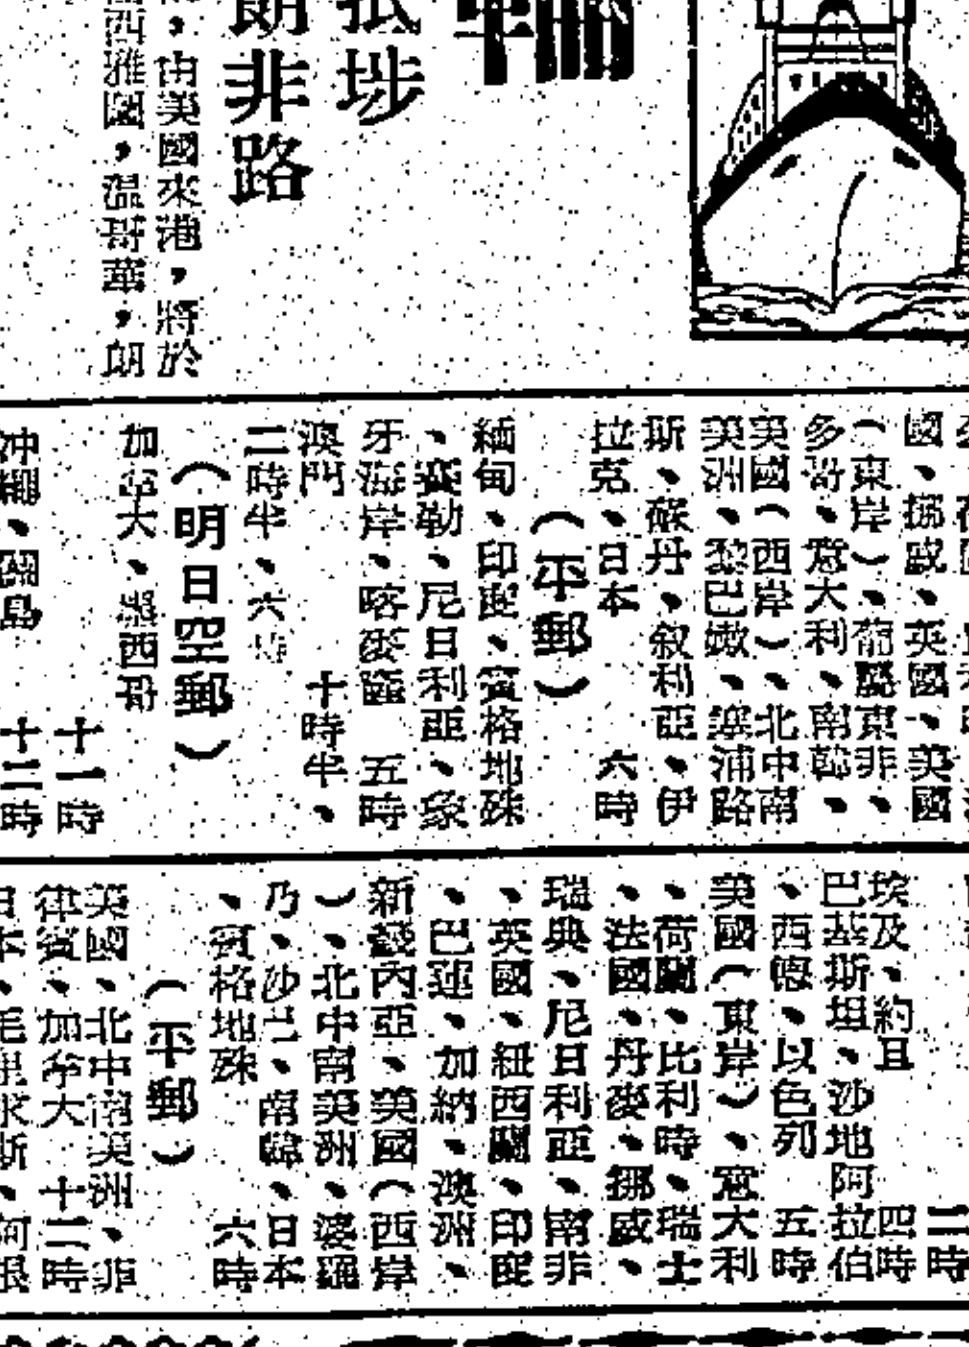 埗
朗非路
，由美國來港，將於
西雅圖，温哥華，朗
國、挪威、英國、美國
（東岸）、葡屬東非、
多哥、意大利、南韓、
美國（西岸）、北中南
美洲、黎巴嫩、
斯、蘇丹、敘利亞、伊
拉克、日本　六時
（平郵）
緬甸、印度、賓格地殊
、塞勒、尼日利亞、象
牙海岸、喀麥隆　五時
澳門　十時半、
二時半、六時
（明日空郵）
加拿大、墨西哥
十一時
冲繩、關島　十二時
二時
埃及、約旦　四時
巴基斯坦、沙地阿拉伯
、西德、以色列　五時
美國（東岸）、意大利
、荷蘭、比利時、瑞士
、法國、丹麥、挪威、
瑞典、尼日利亞、南非
、英國、紐西蘭、印度
、巴連、加納、澳洲、
新畿內亞、美國（西岸
）、北中南美洲、婆羅
乃、沙巴、南韓、日本
、賓格地殊　六時
（平郵）
英國、北中南美洲、非
律賓、加拿大　十二時
日本、毛里求斯、阿根